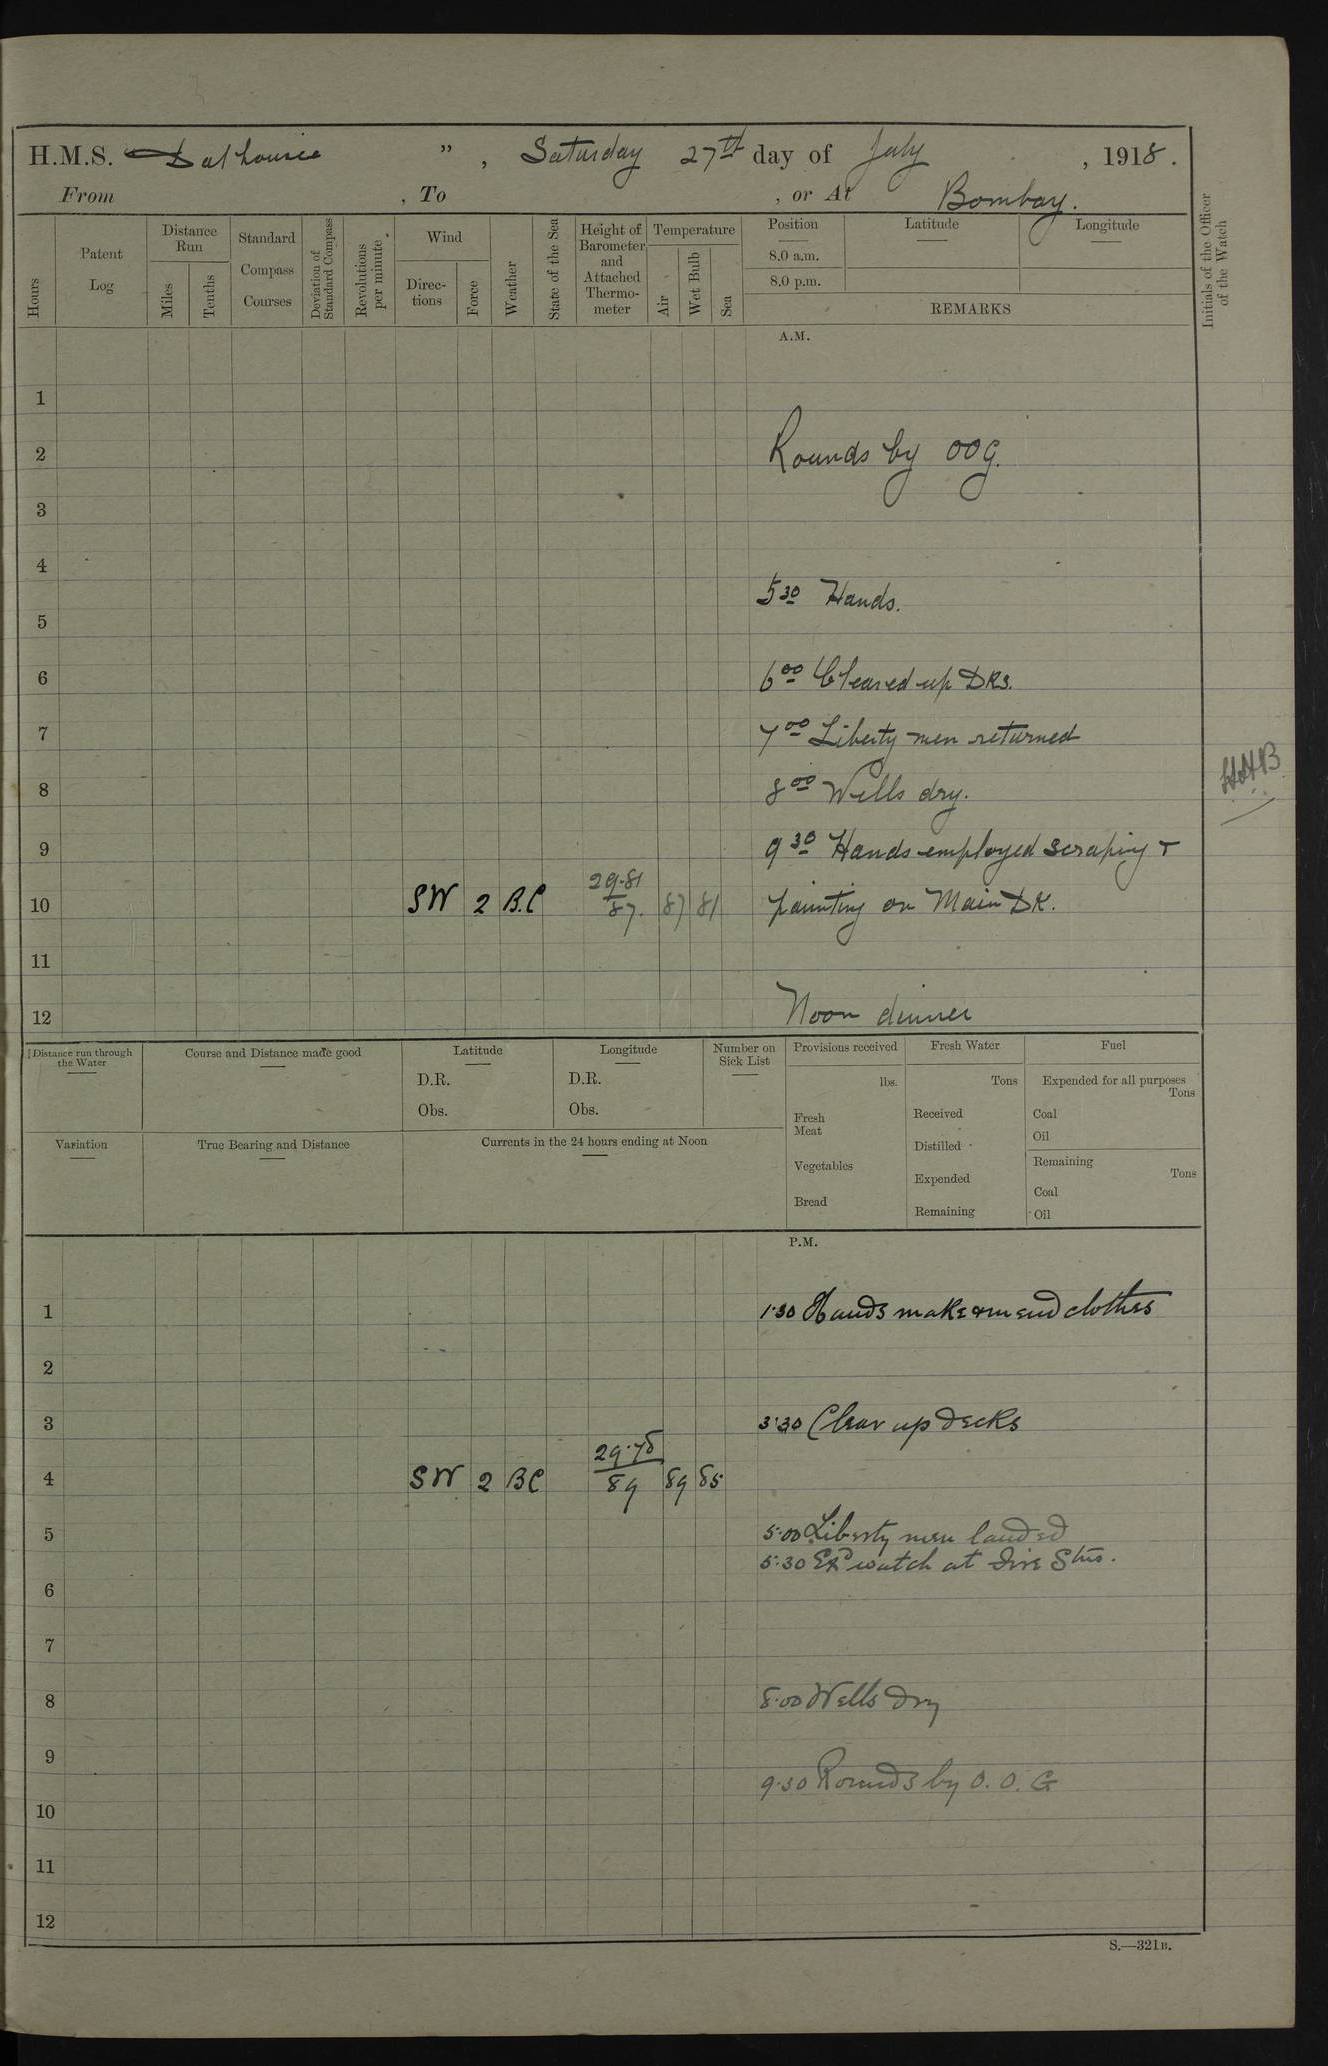 H.M.S. Dalhousie ” , Saturday 27th day of July , 1918.
From , To , or At Bombay.
Hours
Patent Log
Distance Run
Miles
Tenths
Standard Compass Courses
Deviation of Standard Compass
Revolutions per minute
Wind
Directions
Force
Weather
State of the Sea
Height of Barometer and Attached Thermometer
Temperature
Air
Wet Bulb
Sea
Position
8.0 a.m.
8.0 p.m.
Latitude
Longitude
REMARKS
Initials of the Officer of the Watch
A.M.
1
2 Rounds by OOG.
3
4
5 30 Hands.
5
6 6 00 Cleared up DKs.
7 7 00 Liberty men returned
8 8 00 Wells dry.
HHB
9 9 30 Hands employed scraping +
10 SW 2 B.C 29.81 87. 87 81 painting on Main DK.
11
12 Noon dinner
Distance run through the Water
Course and Distance made good
Latitude
D.R.
Obs.
Longitude
D.R.
Obs.
Number on Sick List
Provisions received
lbs.
Fresh Meat
Vegetables
Bread
Fresh Water
Tons
Received
Distilled
Expended
Remaining
Fuel
Expended for all purposes
Tons
Coal
Oil
Remaining
Tons
Coal
Oil
Variation
True Bearing and Distance
Currents in the 24 hours ending at Noon
P.M.
1 1.30 Hands make & mend clothes
2
3 3.30 Clear up decks
4 SW 2 BC 29.78 89 89 85
5 5.00 Liberty men landed
5.30 Exd watch at Fire Stns.
6
7
8 8.00 Wells Dry
9
9.30 Rounds by O.O.G
10
11
12
S.—321B.